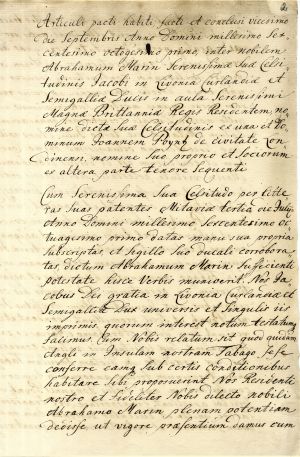 Articuli pacti habiti facti et conclusi vicesimo
die Septembris Anno Domini millesimo sex
centesimo octogesimo primo inter nobilem
Abrahamum Marin Serenissimæ Suæ Celsi
tudinis Jacobi in Livonia Curlandiæ et
Semigalliæ Ducis in aula Serenissimi
Magnæ Brittanniæ Regis Residentem, no
mine dictæ Suæ Celsitudinis ex una et Do
minum Joannem Poyntz de Civitate Lon
dinensi, nomine Suo proprio et Sociorum
ex altera parte tenore Sequente
Cum Serenissima Sua Celsitudo per litte
ras Suas patentes Mitaviæ tertia die Julij
Anno Domini millesimo Sexcentesimo oc
tuagesimo primo datas manu sua propria
Subscriptas, et Sigillo Suo ducali corrobora
tas, dictum Abrahamum Marin Sufficiente
potestate hisce Verbis muniverit. Nos Ja
cobus Dei gratia in Livonia Curlandiæ et
Semigalliæ Dux universis et Singulis iis
imprimis, quorum interest notum testatumq
facimus. Cum Nobis relatum sit quod quidam
Angli in Insulam nostram Tabago se se
conferre eamq Sub certis conditionebus
habitare Sibi proposuerint, Nos Residente
nostro et fideliter Nobis dilecto nobili
Abrahamo Marin plenam potentiam
dedisse, ut vigore præsentium damus cum